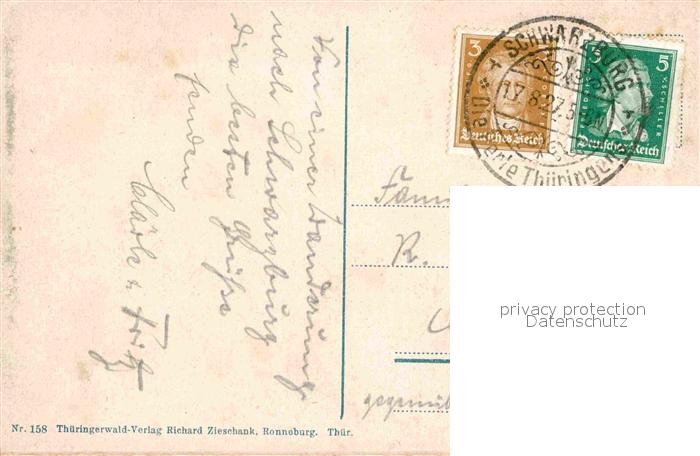 Von einer Wanderung
nach Schwarzburg
die besten Grüße
senden
& Fritz
3
Deutsches Reich
5
V. SCHILLER
Deutsches Reich
SCHWARZBURG
17.8.27.
Die Perle Thüringens
Fam
R.
gegenüb
privacy protection
Datenschutz
Nr. 158 Thüringerwald-Verlag Richard Zieschank, Ronneburg. Thür.